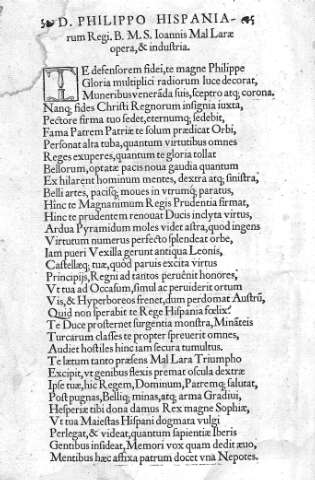 D. PHILIPPO HISPANIA-
rum Regi. B. M. S. Ioannis Mal Laræ
opera, & industria.
TE defensorem fidei, te magne Philippe
Gloria multiplici radiorum luce decorat,
Muneribus venerãda suis, sceptro atq; corona.
Nanq; fides Christi Regnorum insignia iuxta,
Pectore firma tuo sedet, eternumq; sedebit,
Fama Patrem Patriæ te solum prædicat Orbi,
Personat alta tuba, quantum virtutibus omnes
Reges exuperes, quantum te gloria tollat
Bellorum, optatæ pacis noua gaudia quantum
Ex hilarent hominum mentes, dextra atq; sinistra,
Belli artes, pacisq; moues in vtrumq; paratus,
Hinc te Magnanimum Regis Prudentia firmat,
Hinc te prudentem renouat Ducis inclyta virtus,
Ardua Pyramidum moles videt astra, quod ingens
Virtutum numerus perfecto splendeat orbe,
Iam pueri Vexilla gerunt antiqua Leonis,
Castellæq; tuæ, quod paruis excita virtus
Principijs, Regni ad tantos peruênit honores,
Vt tua ad Occasum, simul ac peruiderit ortum
Vis, & Hyperboreos frenet, dum perdomat Austrũ,
Quid non sperabit te Rege Hispania fœlix?
Te Duce prosternet surgentia monstra, Minãteis
Turcarum classes te propter spreuerit omnes,
Audiet hostiles hinc iam secura tumultus.
Te lætum tanto præsens Mal Lara Triumpho
Excipit, vt genibus flexis premat oscula dextræ
Ipse tuæ, hic Regem, Dominum, Patremq; salutat,
Post pugnas, Belliq; minas, atq; arma Gradiui,
Hesperiæ tibi dona damus Rex magne Sophiæ,
Vt tua Maiestas Hispani dogmata vulgi
Perlegat, & videat, quantum sapientiæ Iberis
Gentibus insideat, Memori vox quam dedit æuo,
Mentibus hæc affixa patrum docet vna Nepotes.